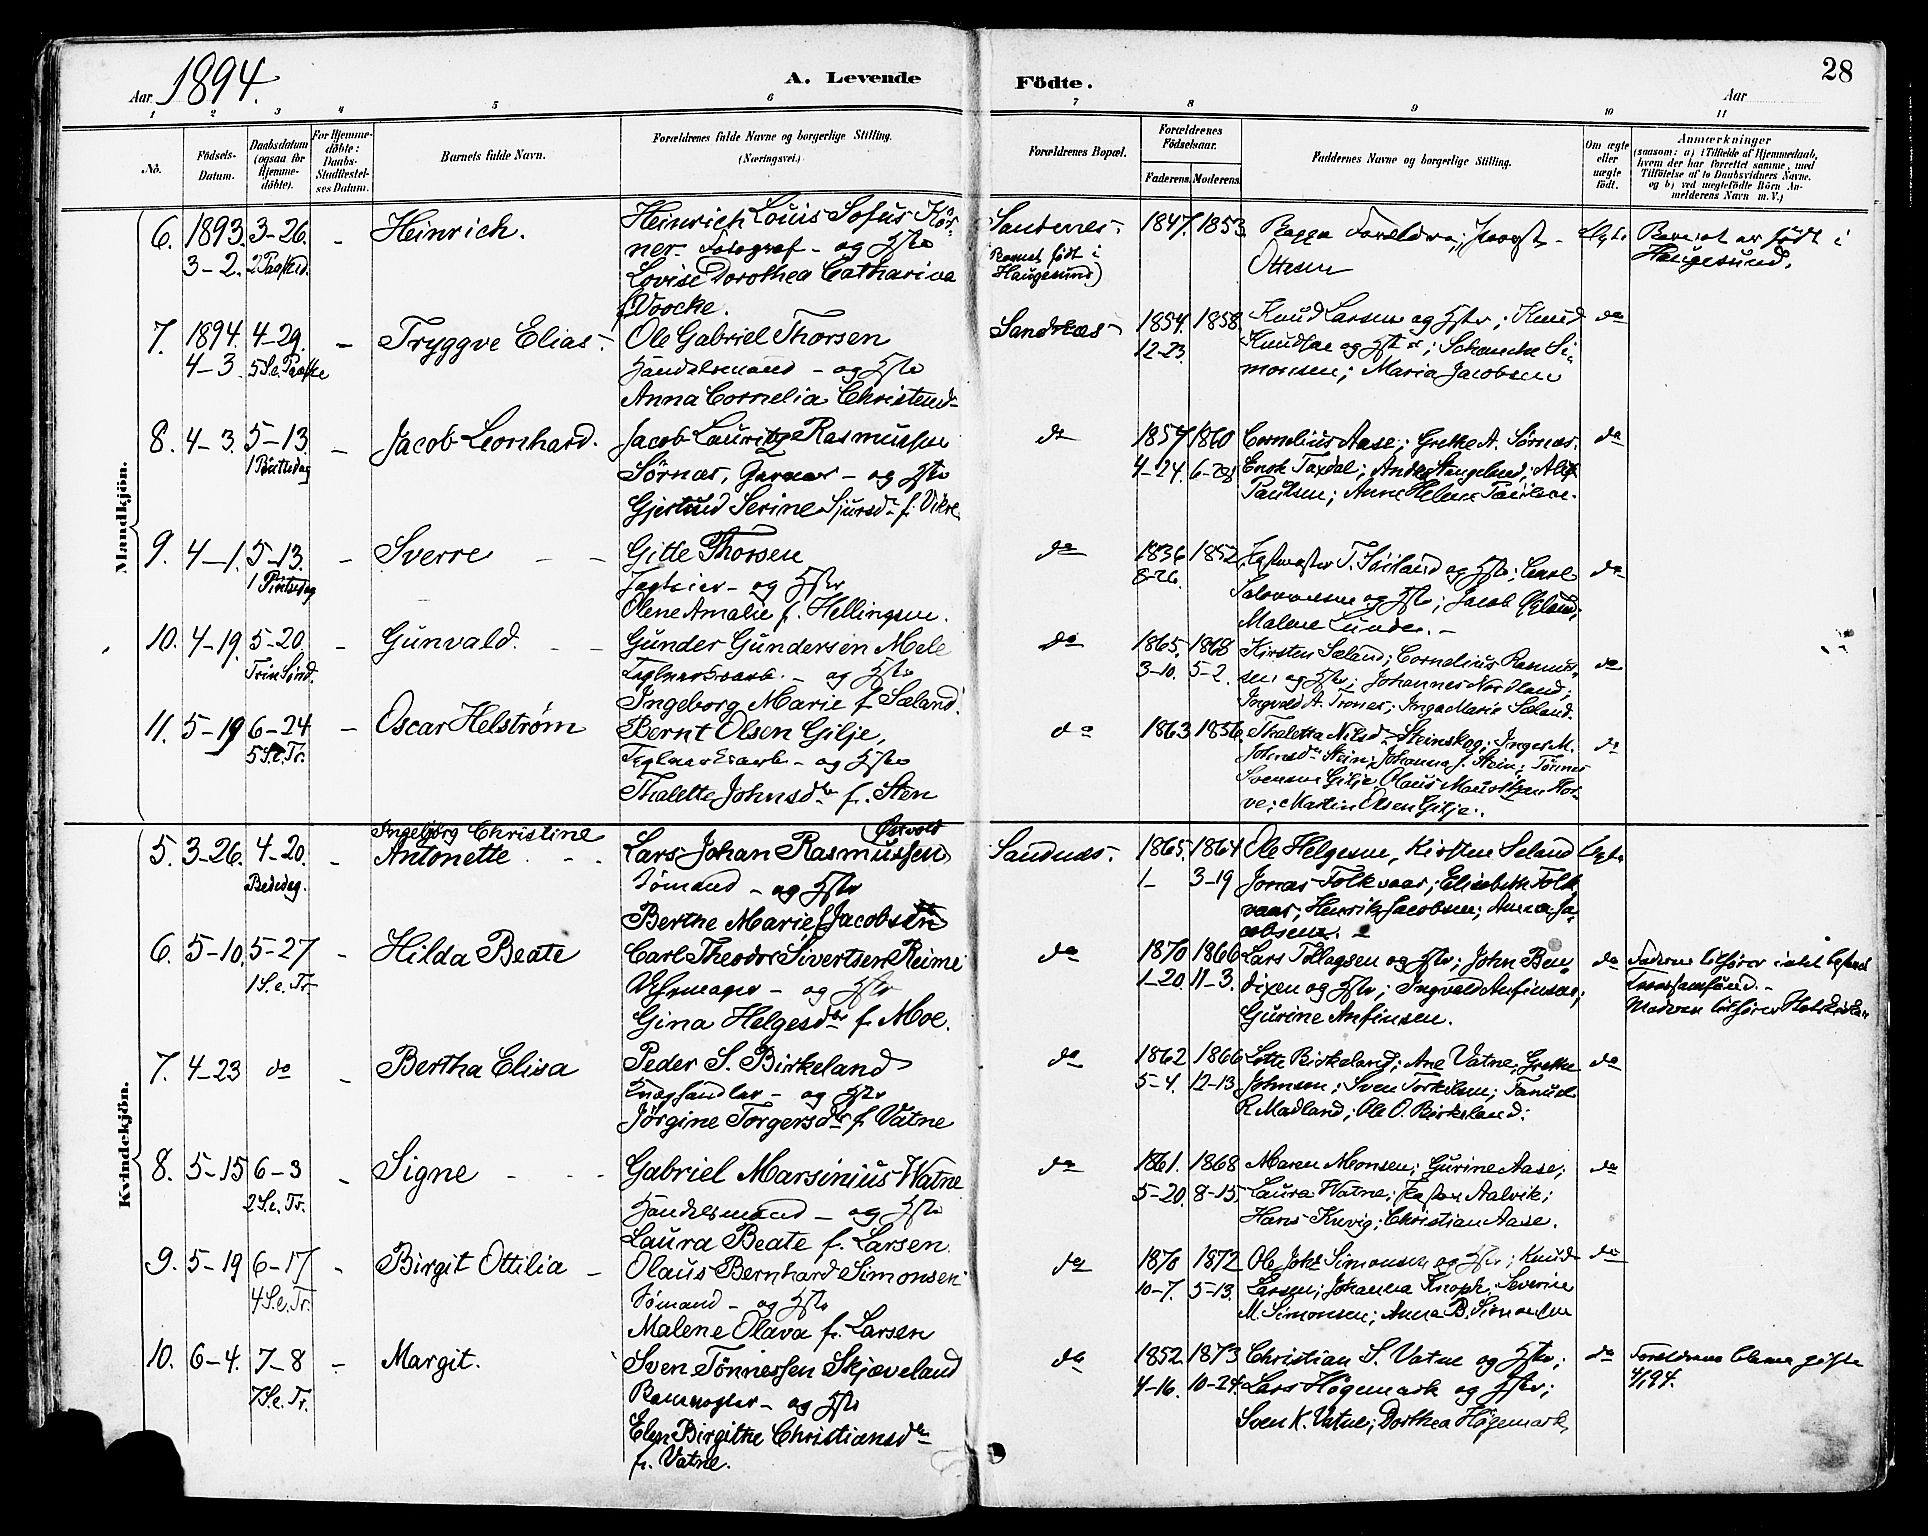 Aar 1894.
A. Levende Födte.
28
Aar
1 2 3 4 5 6 7 8 9 10 11
No.
Födsels-Datum.
Daabsdatum (ogsaa for Hjemme-döbte).
For Hjemme-döbte: Daabs-Stadfæstel-ses Datum.
Barnets fulde Navn.
Forældrenes fulde Navne og borgerlige Stilling.
(Næringsvei.)
Forældrenes Bopæl.
Forældrenes Födselsaar.
Faderens. Moderens.
Faddernes Navne og borgerlige Stilling.
Om ægte eller uægte födt.
Anmærkninger
(saasom: a) i Tilfælde af Hjemmedaab, hvem der har forrettet samme, med Tilföielse af to Daabsvidners Navne, og b) ved uægtefödte Börn An-melderens Navn m. V.)
Mandkjön.
6. 1893. 3-26. - Heinrich. Heinrich Louis Sofus Kör- Sandenes- 1847. 1853
3-2. 2 Paaskd. ner Fotograf - og Hstr (Barnet født i
Lovise Dorothea Catharina Haugesund.) Ottesen
f. Voocke.
Barnet er født i
Haugesund.
7. 1894. 4-29. - Tryggve Elias- Ole Gabriel Thorsen Sandnæs- 1854. 1858. Knud Larsen og Hstr; Knud do
4-3. 5 S.e. Paaske Handelsmand - og Hstr 12-23. og Hstr; Si-
Anna Cornelia Christensd- monsen; Maria Jacobsen
8. 4-3. 5-13. - Jacob Leonhard. Jacob Lauritz Rasmussen do 1857 1860 Cornelius Aase; Grethe A. Sørnæs. do
1 Pintsedag Sørnæs, Garver - og Hstr 4-24. 6-28 Enok Taxdal; Stangeland;
Gjertrud Serine Sjursd- f. Vikre. Paulsen; Anne Helene
9. 4-1. 5-13. - Sverre Gitte Thorsen do 1836 1852 T. Søiland og Hstr; Carl do
1 Pintsedag og Hstr 8-26. og Hstr; Jacob
Olene Amalie f. Hellingsen. Malene Lunde. -
10. 4-19. 5-20. - Gunvald. Gunder Gundersen Mele do 1865. 1868 Kirsten Sæland; Cornelius Rasmus- do
Trin Sønd. Teglværksarb. - og Hstr 3-10. 5-2. sen og Hstr; Johannes Nordland;
Ingeborg Marie f. Sæland. Ingvald A. Trones; Inga Marie Sæland.
11. 5-19 6-24 - Oscar Helstrøm Bernt Olsen Gilje, do 1863 1856. Thaletta Nilsd- Steinskog; Inger M. do
5 S.e. Tr. Teglværksarb - og Hstr Johnsd- Stein; Johanna J. Stein; Tønnes
Thalette Johnsdtr f. Sten Svensen Gilje; Olaus
Martin Olsen Gilje.
Kvindekjön.
Ingebjørg Christine Østvold
5. 3-26. 4-20. - Antonette Lars Johan Rasmussen Sandnæs. 1865. 1864 Ole Helgesen, Kirsten Seland Ægte
Bededag. Sømand - og Hstr 1- 3-19 Jonas Folkvaar; Elisabeth Folk
Berthe Marie f. Jacobsen vaar; Henrik Jacobsen; Anna Ja-
cobsen.
6. 5-10. 5-27 - Hilda Beate Carl Theodor Sivertsen Reime do 1870 1866 Lars Tollagsen og Hstr; John Ben- do Faderen tilhører
1 S.e. Tr. Uhrmager - og Hstr 1-20. 11-3. dixen og Hstr; Ingvald Anfinsen;
Gina Helgesdtr f. Moe. Gurine Anfinsen. Moderen tilhører Statskirken
7. 4-23 do - Bertha Elisa Peder S. Birkeland do 1862 1866 Lotte Birkeland; Ane Vatne, Grethe do
Kvæghandler - og Hstr 5-4. 12-13 Johnsen; Sven Torkelsen; Fanuel
Jørgine Torgersdtr f. Vatne R. Madland; Ole O. Birkeland.
8. 5-15 6-3 - Signe Gabriel Marsinius Watne do 1861. 1868 Maren Monsen; Gurine Aase; do
2 S.e. Tr. Handelsmand - og Hstr 5-20. 8-15. Laura Watne; Aalvik;
Laura Beate f. Larsen. Hans Kuvig; Christian Aase.
9. 5-19 6-17 - Birgit Ottilia Olaus Bernhard Simonsen do 1870 1872 Ole Joh. Simonsen og Hstr; Knud do
4 S.e. Tr. Sømand - og Hstr 10-7. 5-13. Larsen; Johanna Severine
Malene Olava f. Larsen M. Simonsen; Anna B. Simonsen
10. 6-4. 7-8 - Margit. Sven Tønnessen Skjæveland do 1852. 1873 Christian S. Vatne og Hstr; do Forældrene bleve gifte
7 S.e. Tr. og Hstr 4-16. 10-24. Lars Høgemark og Hstr;
Elen Birgithe Christiansdtr Sven K. Vatne; Dorthea Høgemark
f. Vatne.